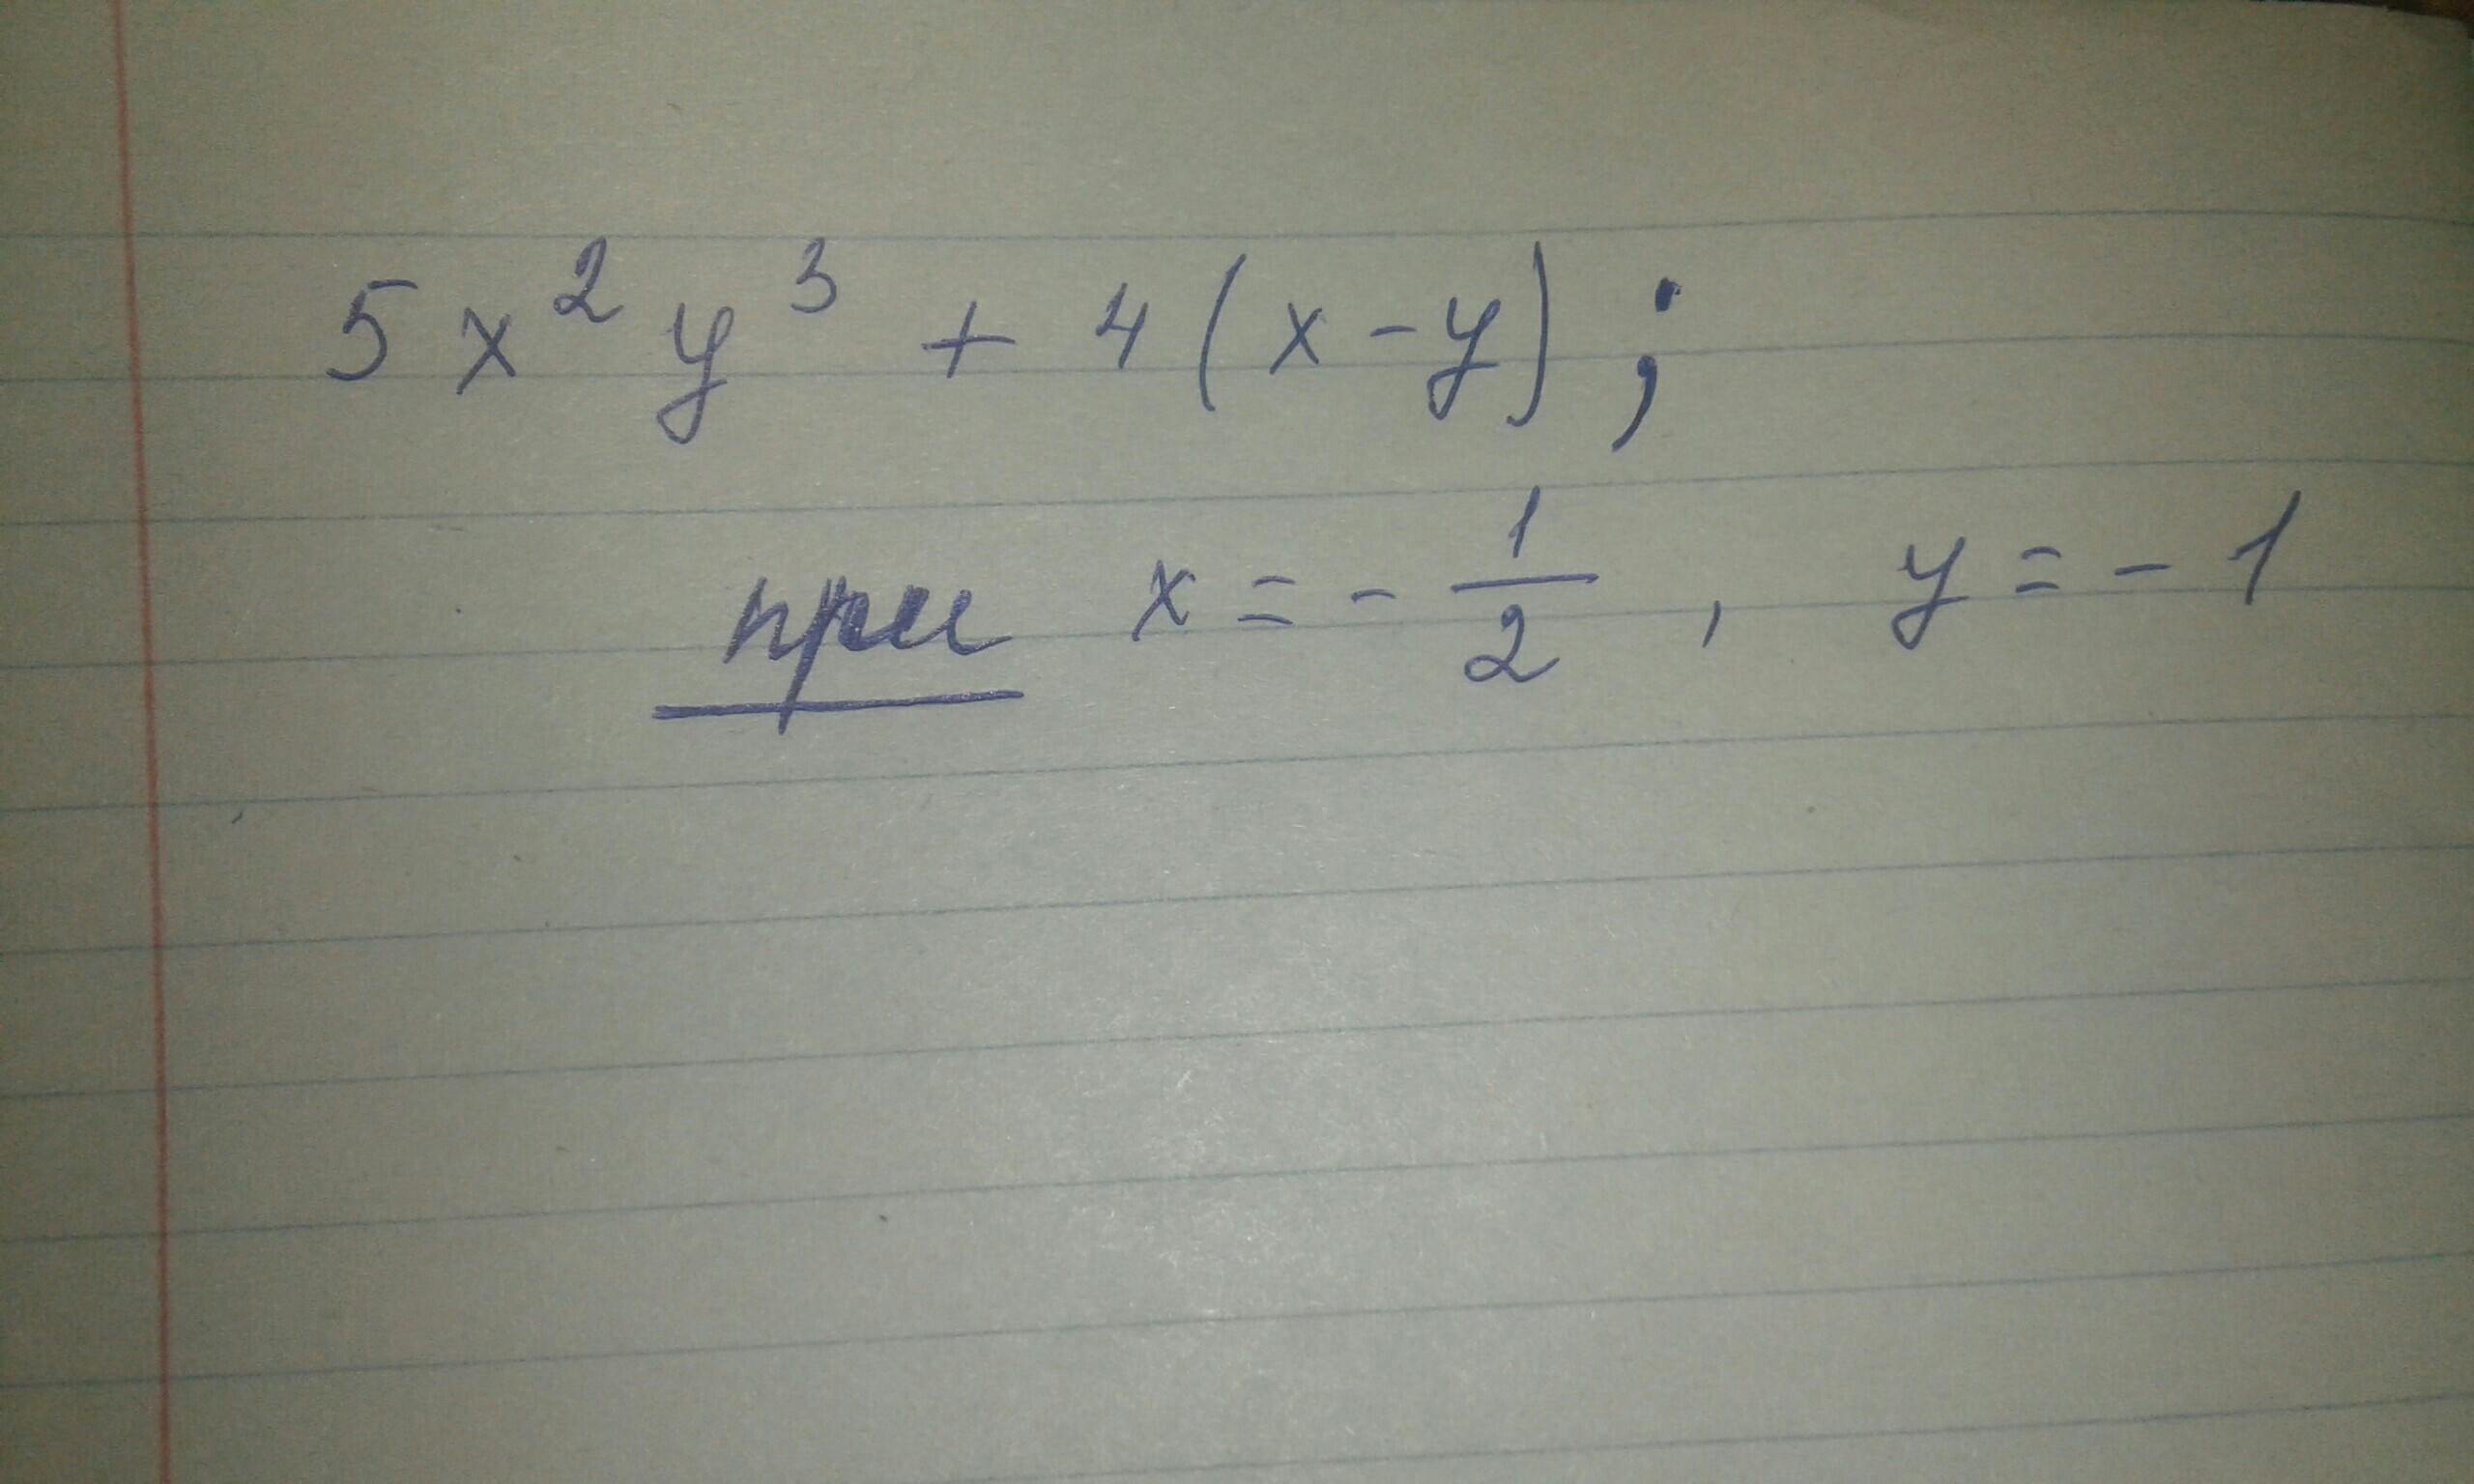 5x²y³ + 4(x-y);
при x = - 1/2, y = - 1